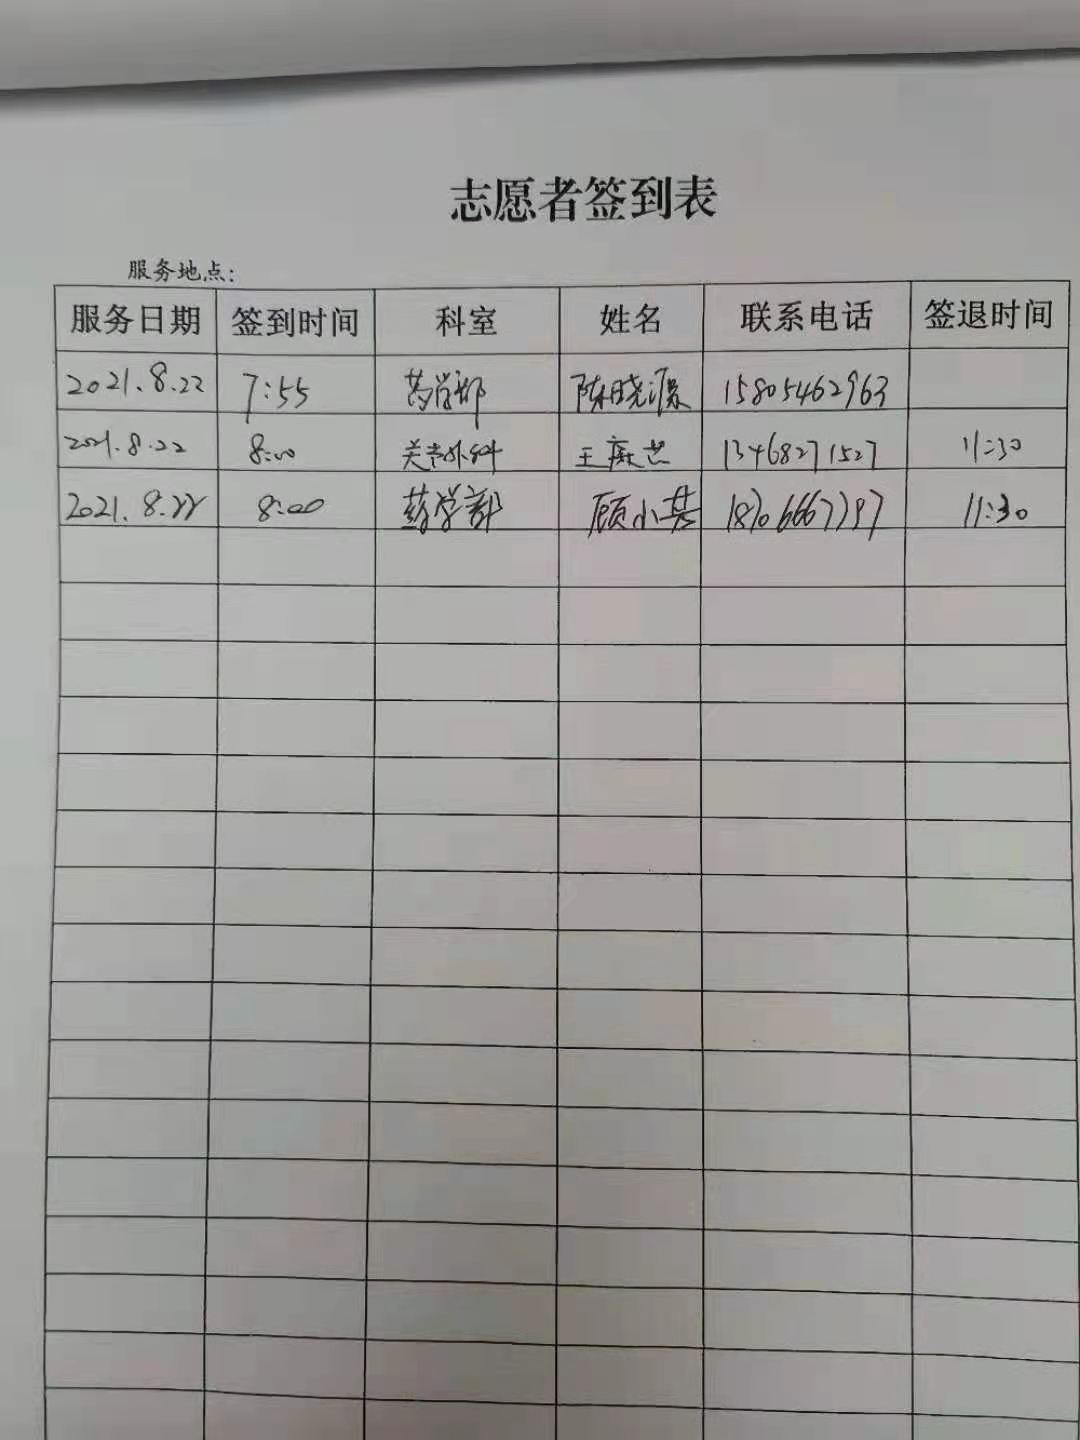 志愿者签到表
服务地点:
服务日期 签到时间 科室 姓名 联系电话 签退时间
2021.8.22 7:55 药学部 陈晓源 15805462963
2021.8.22 8:00 关节外科 王庭 13468271527 11:30
2021.8.22 8:00 药学部 顾小 11:30